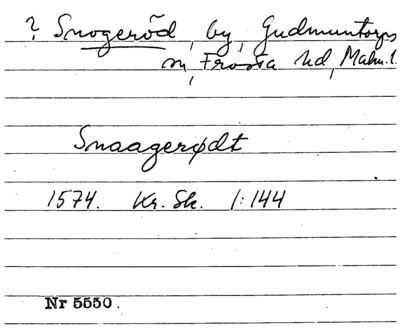 ? Snogeröd, by, Gudmuntorps
sn, Frosta hd, Malm. l.
Snaagerødt
1574. Kr. Sk. 1:144
Nr 5550.